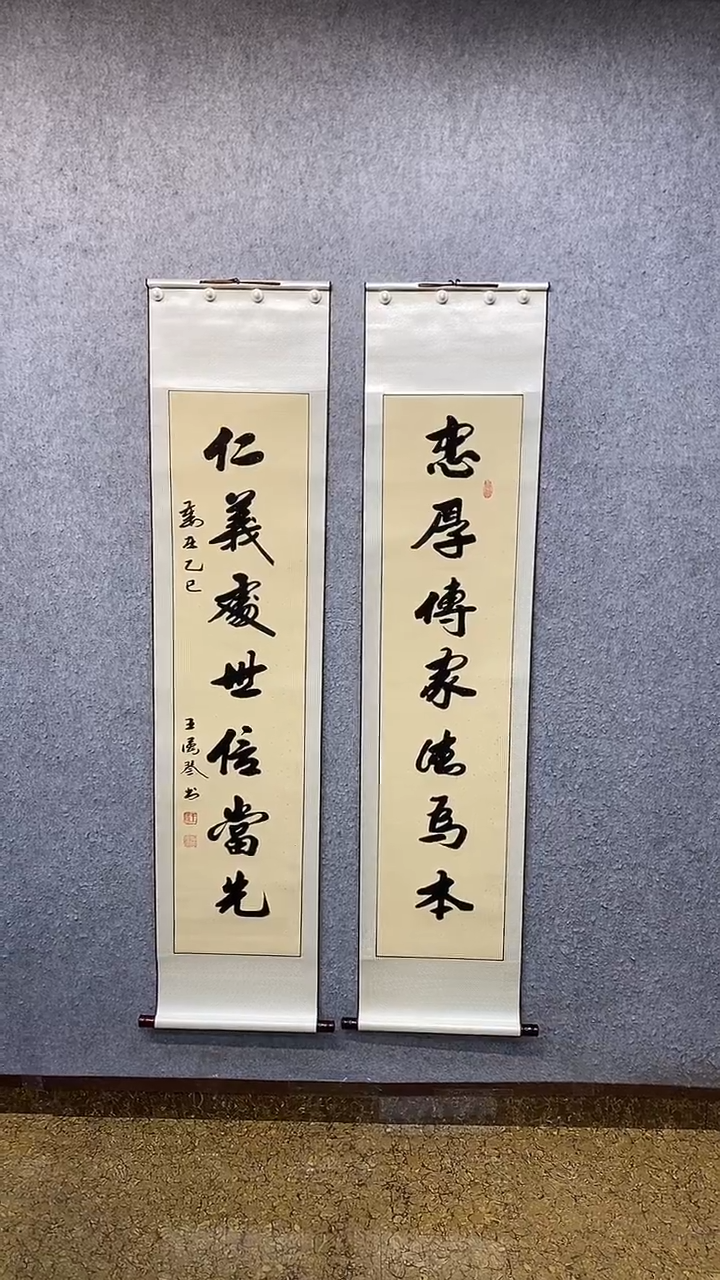 忠厚傳家德為本
仁義處世信當先
歲在乙巳
王 琴书